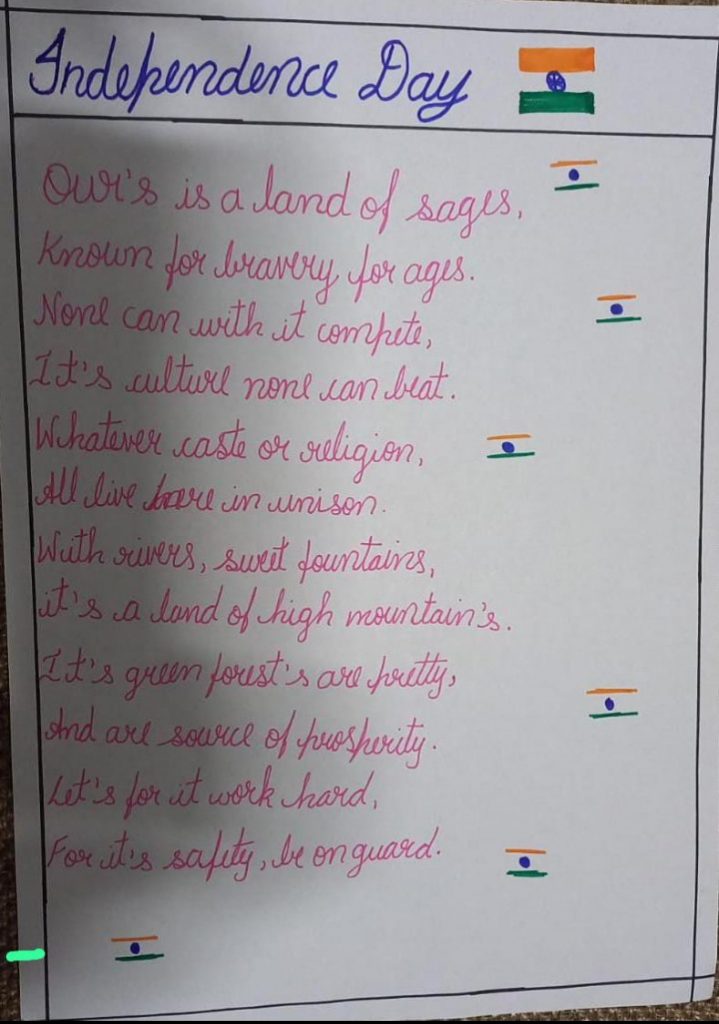 Independence Day
Our's is a land of sages,
Known for bravery for ages.
None can with it compete,
It's culture none can beat.
Whatever caste or religion,
All live here in unison.
With rivers, sweet fountains,
it's a land of high mountain's.
It's green forest's are pretty,
And are source of prosperity.
Let's for it work hard,
For it's safety, be on guard.